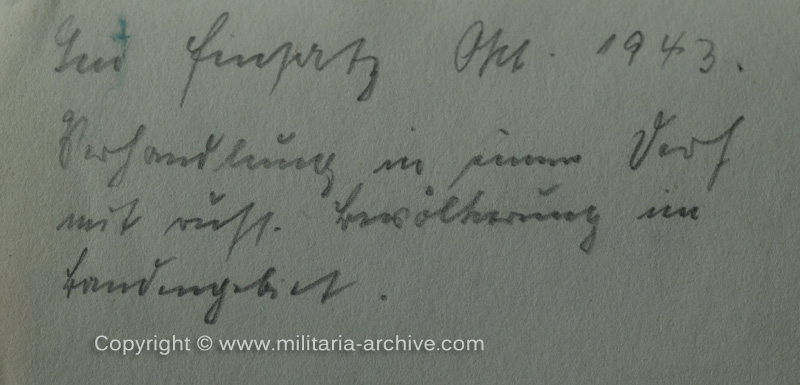 Im Einsatz Okt. 1943.
Verhandlung in einem Dorf
mit russ. Bevölkerung im
Bandengebiet.
Copyright © www.militaria-archive.com